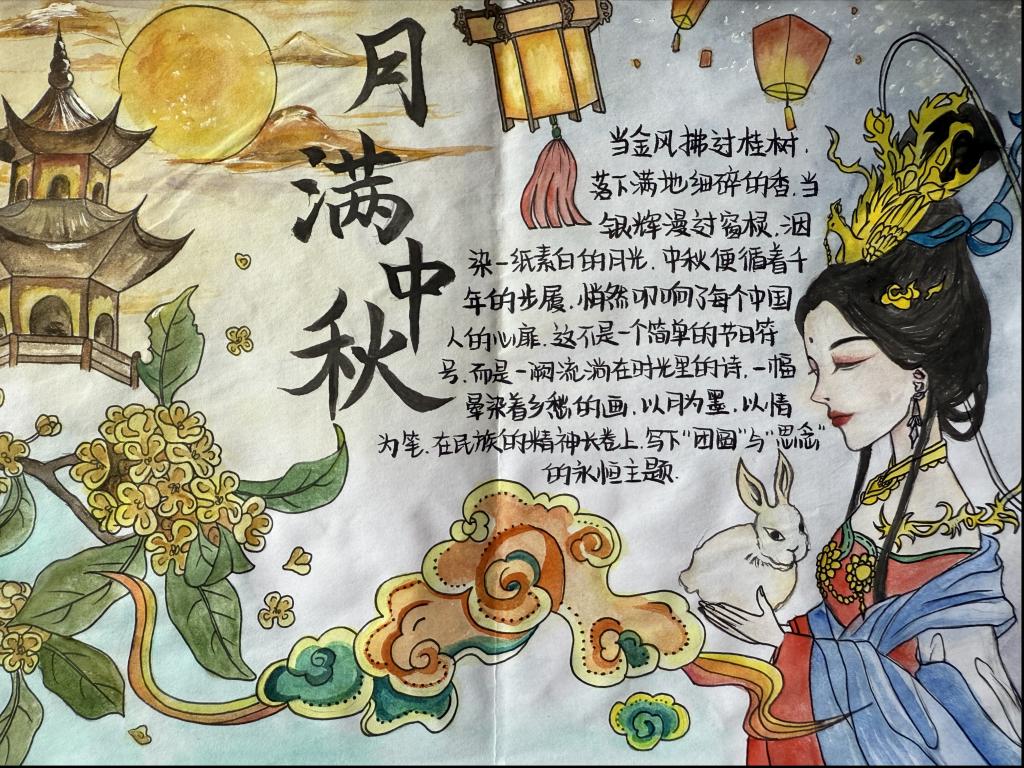 月满中秋
当金风拂过桂树,
落下满地细碎的香.当
银辉漫过窗棂.洇
染一纸素白的月光.中秋便循着千
年的步履.悄然叩响了每个中国
人的心扉.这不是一个简单的节日符
号.而是一阕流淌在时光里的诗.一幅
晕染着乡愁的画.以月为墨.以情
为笔.在民族的精神长卷上.写下“团圆”与“思念”
的永恒主题.